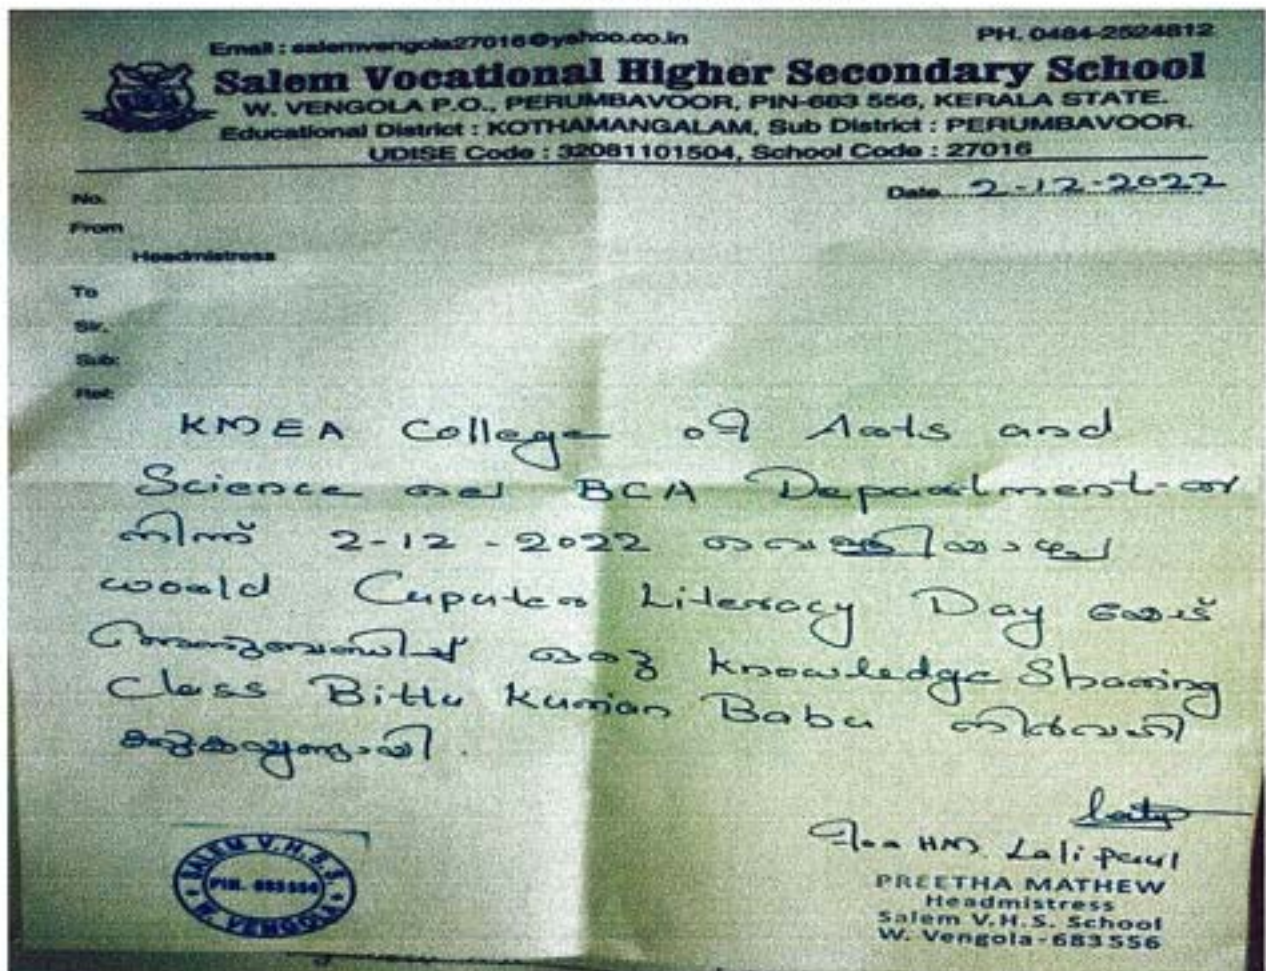 Email : salemvengola27016@yahoo.co.in
PH. 0484-2524812
Salem Vocational Higher Secondary School
W. VENGOLA P.O., PERUMBAVOOR, PIN-683 556, KERALA STATE.
Educational District : KOTHAMANGALAM, Sub District : PERUMBAVOOR.
UDISE Code : 32081101504, School Code : 27016
No.
Date 2-12-2022
From
Headmistress
To
Sir,
Sub:
Ref:
KMEA College of Arts and
Science ലെ BCA Department-ൽ
നിന്ന് 2-12-2022 വെള്ളിയാഴ്ച
world Cuputer Literacy Day യോട്
അനുബന്ധിച്ച് ഒരു knowledge Sharing
Class Bittu Kurian Babu നിർവഹി
ക്കുകയുണ്ടായി.
For HM Lali Paul
PREETHA MATHEW
Headmistress
Salem V.H.S. School
W. Vengola-683556
SALEM V.H.S.S.
PIN. 683556
W. VENGOLA